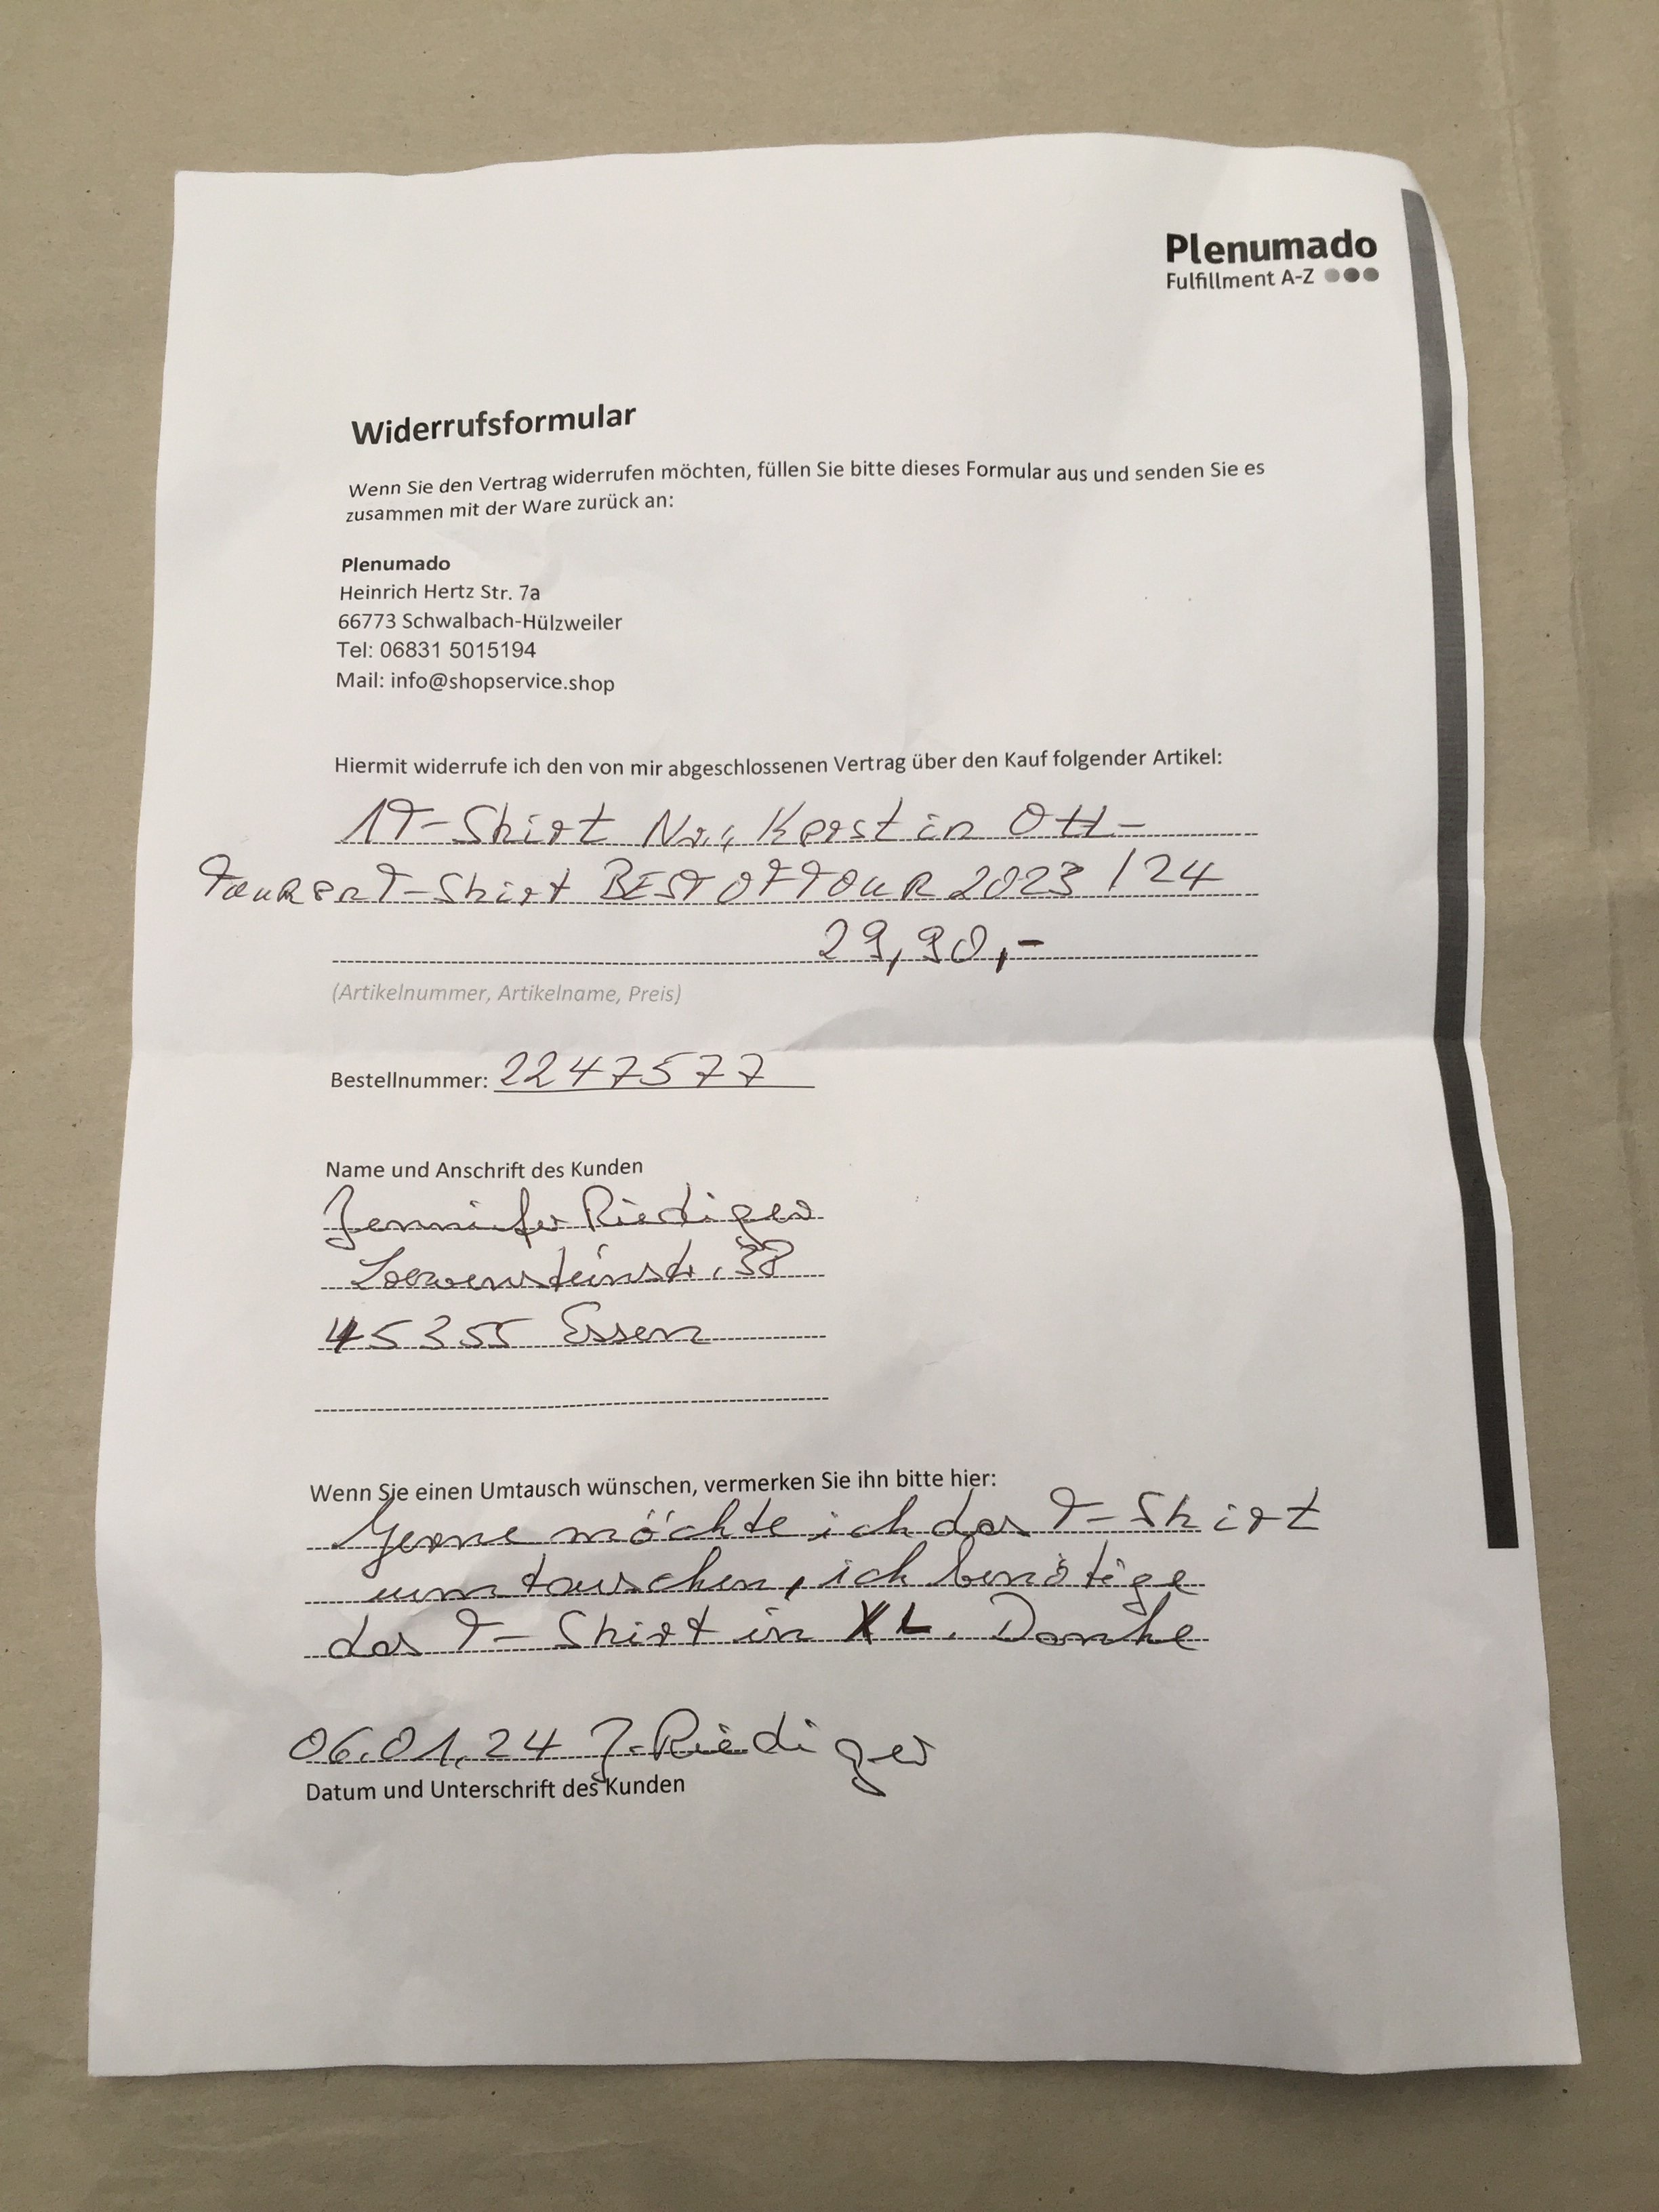 Plenumado
Fulfillment A-Z
Widerrufsformular
Wenn Sie den Vertrag widerrufen möchten, füllen Sie bitte dieses Formular aus und senden Sie es
zusammen mit der Ware zurück an:
Plenumado
Heinrich Hertz Str. 7a
66773 Schwalbach-Hülzweiler
Tel: 06831 5015194
Mail: info@shopservice.shop
Hiermit widerrufe ich den von mir abgeschlossenen Vertrag über den Kauf folgender Artikel:
1T-Shirt Kerstin Ott-
T-Shirt BEST OF TOUR 2023/24
29,90,-
(Artikelnummer, Artikelname, Preis)
Bestellnummer: 2247577
Name und Anschrift des Kunden
Jennifer Riediger
Loewensteinstr. 38
45355 Essen
Wenn Sie einen Umtausch wünschen, vermerken Sie ihn bitte hier:
Gerne möchte ich das T-Shirt
umtauschen, ich benötige
das T-Shirt in XL. Danke
06.01.24 J. Riediger
Datum und Unterschrift des Kunden